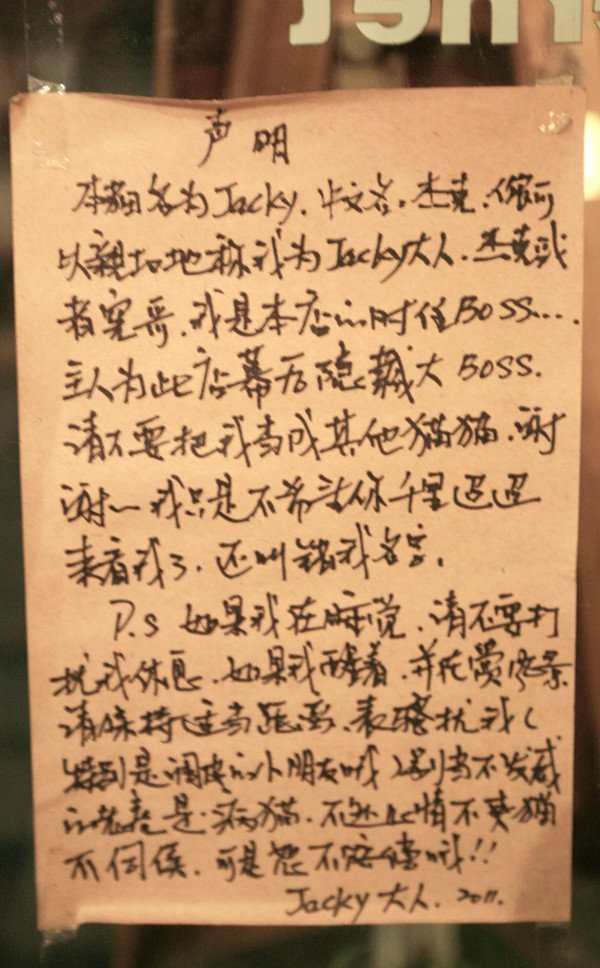 声明
本猫名为Jacky.中文名.杰克.你可
以亲切地称我为Jacky大人.杰克或
者宪哥.我是本店的时任BOSS....
主人为此店幕后隐藏大BOSS.
请不要把我当成其他猫猫.谢
谢~我只是不希望你千里迢迢
来看我了.还叫错我名字.
P.S 如果我在睡觉.请不要打
扰我休息.如果我醒着.并在赏风景
请保持适当距离.表骚扰我(
特别是调皮的小朋友哦 别当不发威
的老巷是病猫.不 情不爽猫
不伺候.可是恕不赔偿哦!!
Jacky大人.2011.